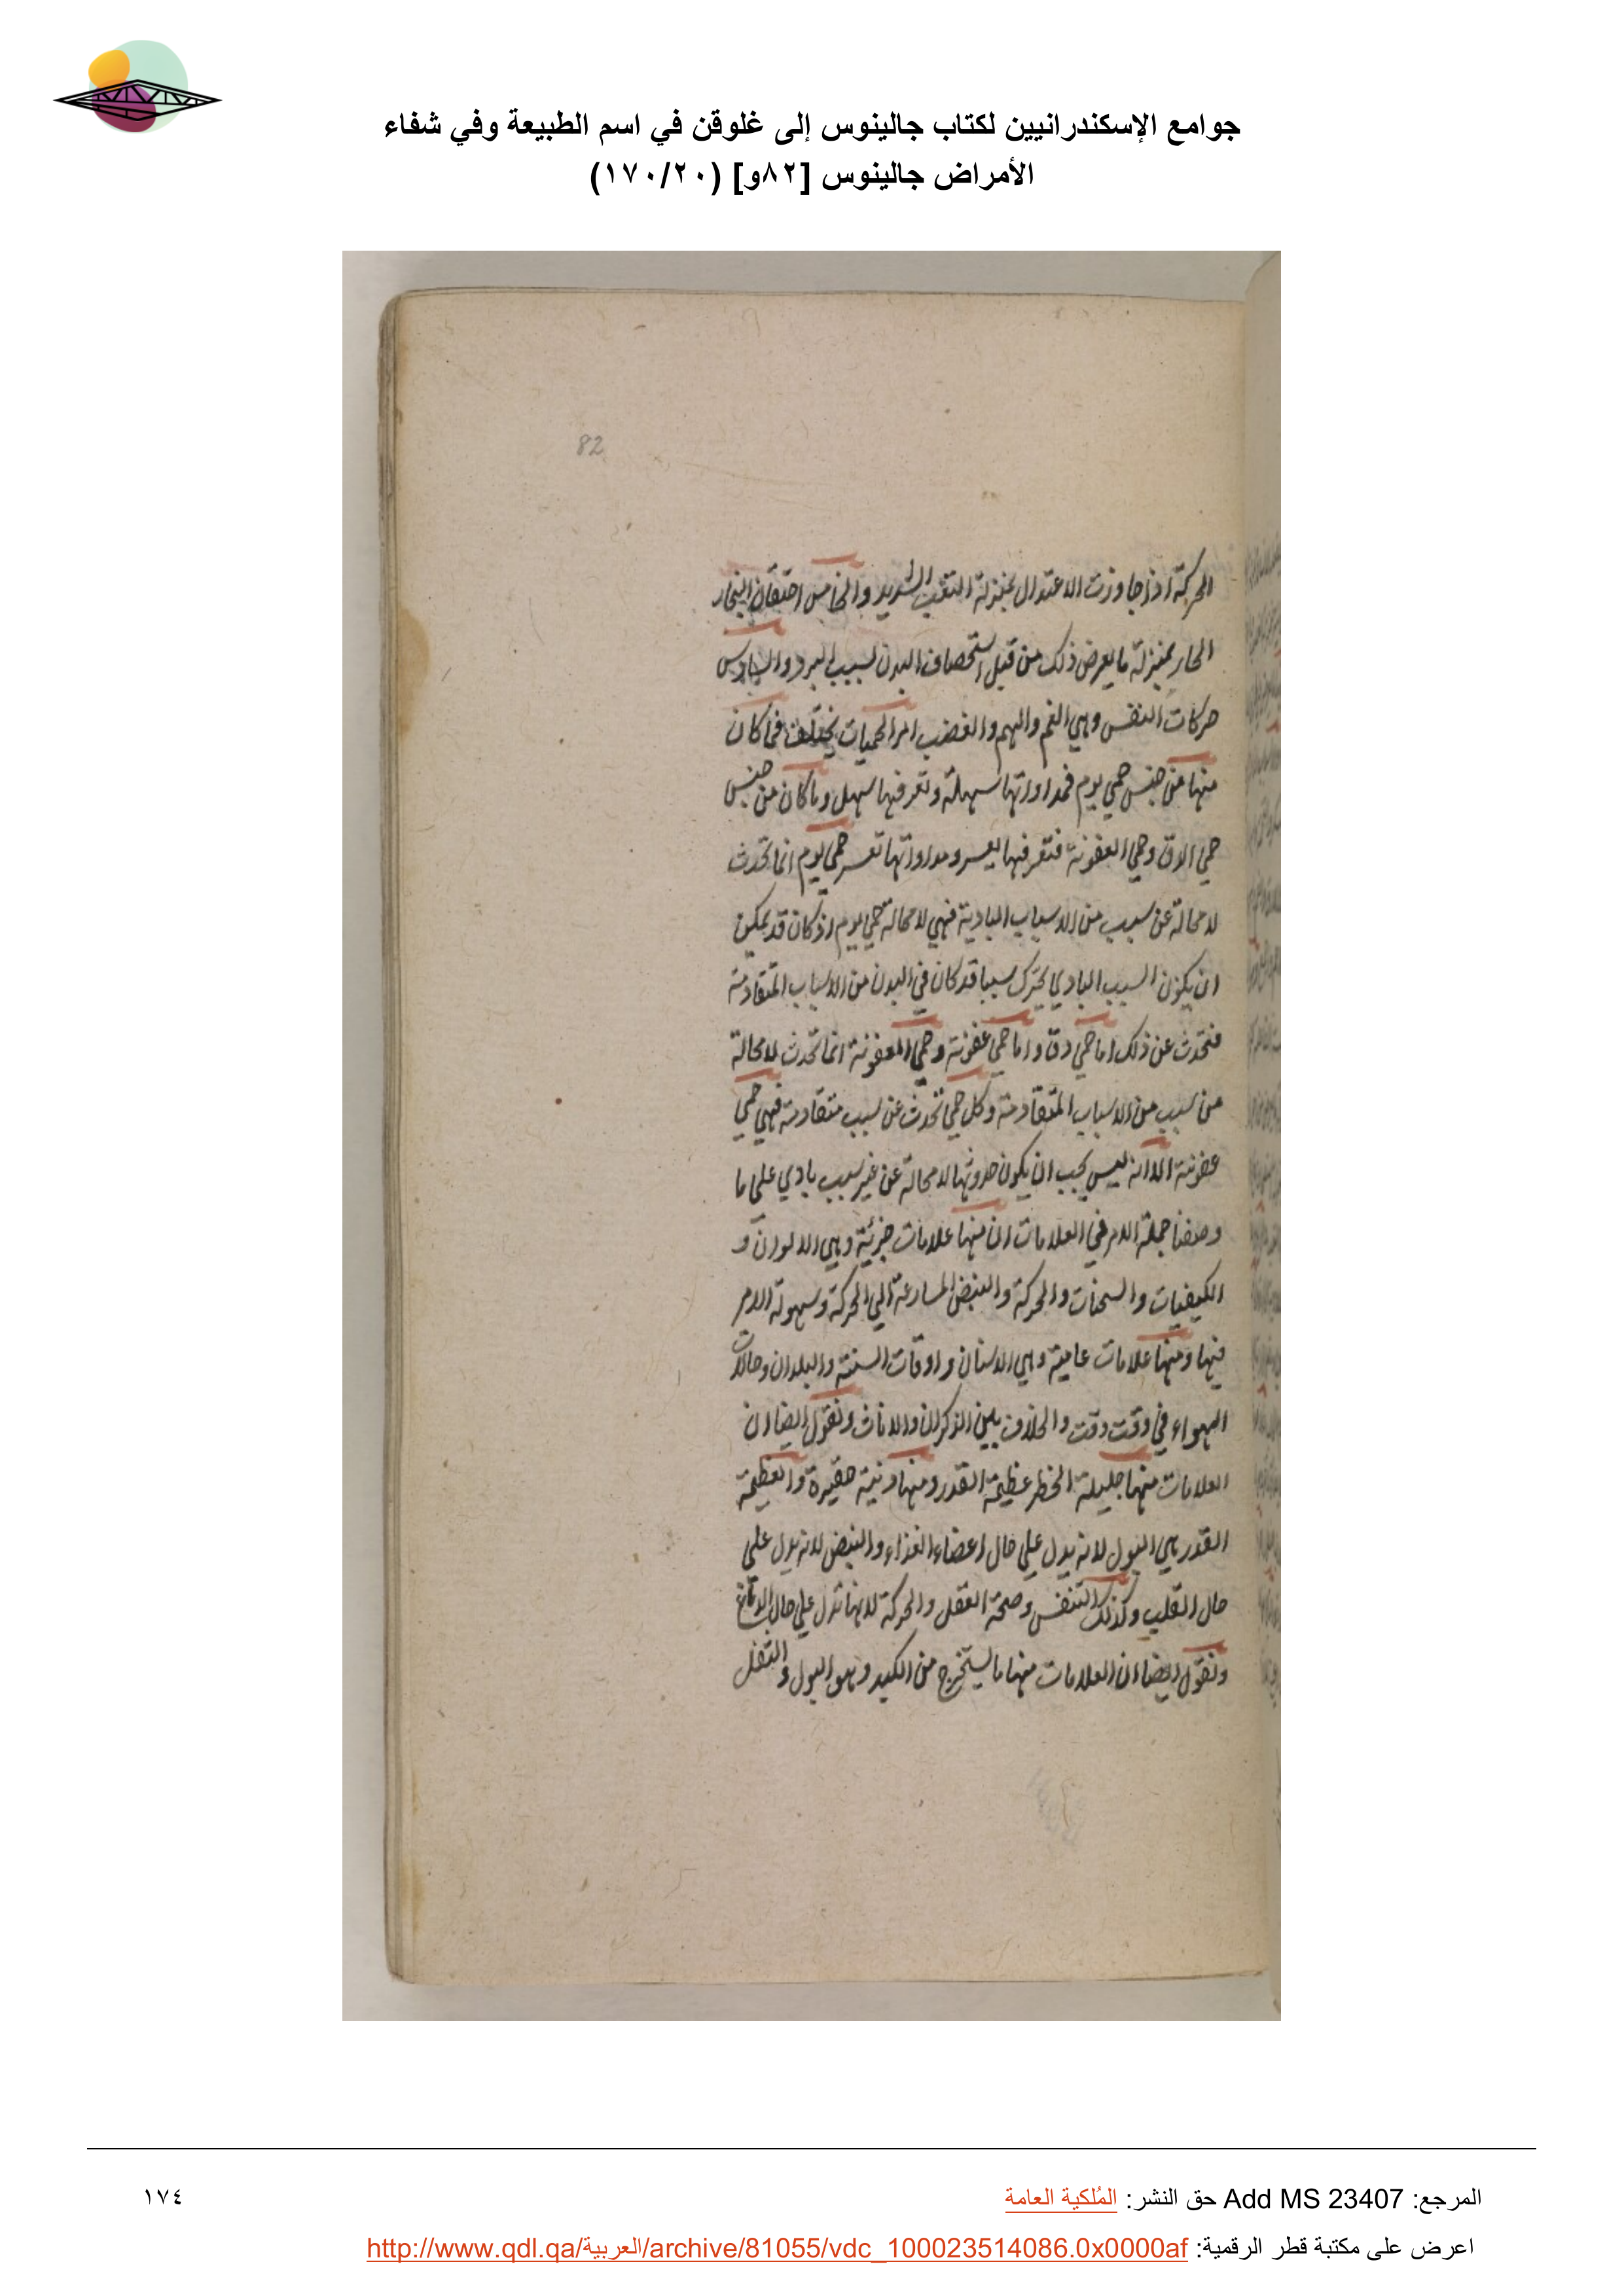 جوامع الإسكندرانيين لكتاب جالينوس إلى غلوقن في اسم الطبيعة وفي شفاء
الأمراض جالينوس [٨٢و] (١٧٠/٢٠)
82
الحركة اذا جاوزت الاعتدال بمنزلة التعب الشديد والخامس احتقان البخار
الحار بمنزلة ما يعرض ذلك من قبل استحصاف البدن لسبب البرد والسادس
حركات النفس وهي الغم والهم والغضب امر الحميات يختلف فما كان
منها من جنس حمي يوم فمداواتها سهلة وتعرفها سهل وما كان من جنس
حمي الدق وحمي العفونة فتعرفها يعسر ومداواتها تعسر حمي يوم انما تحدث
لا محالة عن سبب من الاسباب البادية فهي لا محالة حمي يوم اذ كان قد يمكن
ان يكون السبب البادي يحرك سببا قد كان في البدن من الاسباب المتقادمة
فتحدث عن ذلك اما حمي دق واما حمي عفونة وحمي العفونة انما تحدث لا محالة
من سبب من الاسباب المتقادمة وكل حمي تحدث عن سبب متقادمة فهي حمي
عفونة الا انه ليس يجب ان يكون حدوثها لا محالة عن غير سبب بادي علي ما
وصفنا جملة الامر في العلامات ان منها علامات جزئية وهي الالوان و
الكيفيات والسحنات والحركة والنبض المسارعة الي الحركة وسهولة الامر
فيها ومنها علامات عامية وهي الاسنان واوقات السنة والبلدان وحالات
الهواء في وقت وقت والخلاف بين الذكران والاناث ونقول ايضا ان
العلامات منها جليلة الخطر عظيمة القدر ومنها دنية حقيرة والعظيمة
القدر هي البول لانه يدل علي حال اعضاء الغذاء والنبض لانه يدل علي
حال القلب وكذلك التنفس وصحة العقل والحركة لانها تدل علي حال الدماغ
ونقول ايضا ان العلامات منها ما يستخرج من الكبد وهو البول والثفل
المرجع: Add MS 23407 حق النشر: المُلكية العامة
١٧٤
اعرض على مكتبة قطر الرقمية: http://www.qdl.qa/العربية/archive/81055/vdc_100023514086.0x0000af